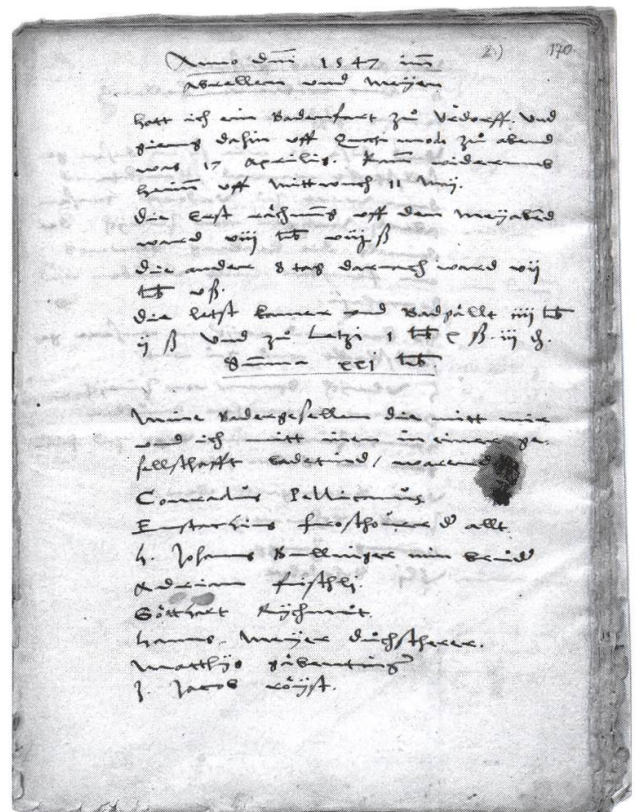 2.) 170.
Anno dni 1547 im
Abrellen und Meyen
hatt ich ein Badenfart zů Urdorff. Und
gieng dahin uff Quasi modo zů abend
was 17 Aprilis. kam widerumb
heim uff Mittwuch 11 Maij.
Die Erst rächnung uff den Meyabēd
ward viij lb viij ß
Die ander 8 tag darnach ward vij
lb vß.
Die letst kamer und Badgällt iiij lb
ij ß und zů Letzi 1 lb x ß. iij d.
Summa xxi lb.
Meine Badergesellen die mitt mir
und ich mitt inen in einer ge-
sellschafft badetind / warend
Conradus Pellicanus
Eustachius froschouer d' allt.
h. Johans Bullinger min brud'
Adrian fischli.
Gothart Rychmut.
Hanns Meyer Duchscherer.
Matthijs
J. Jacob röijst.